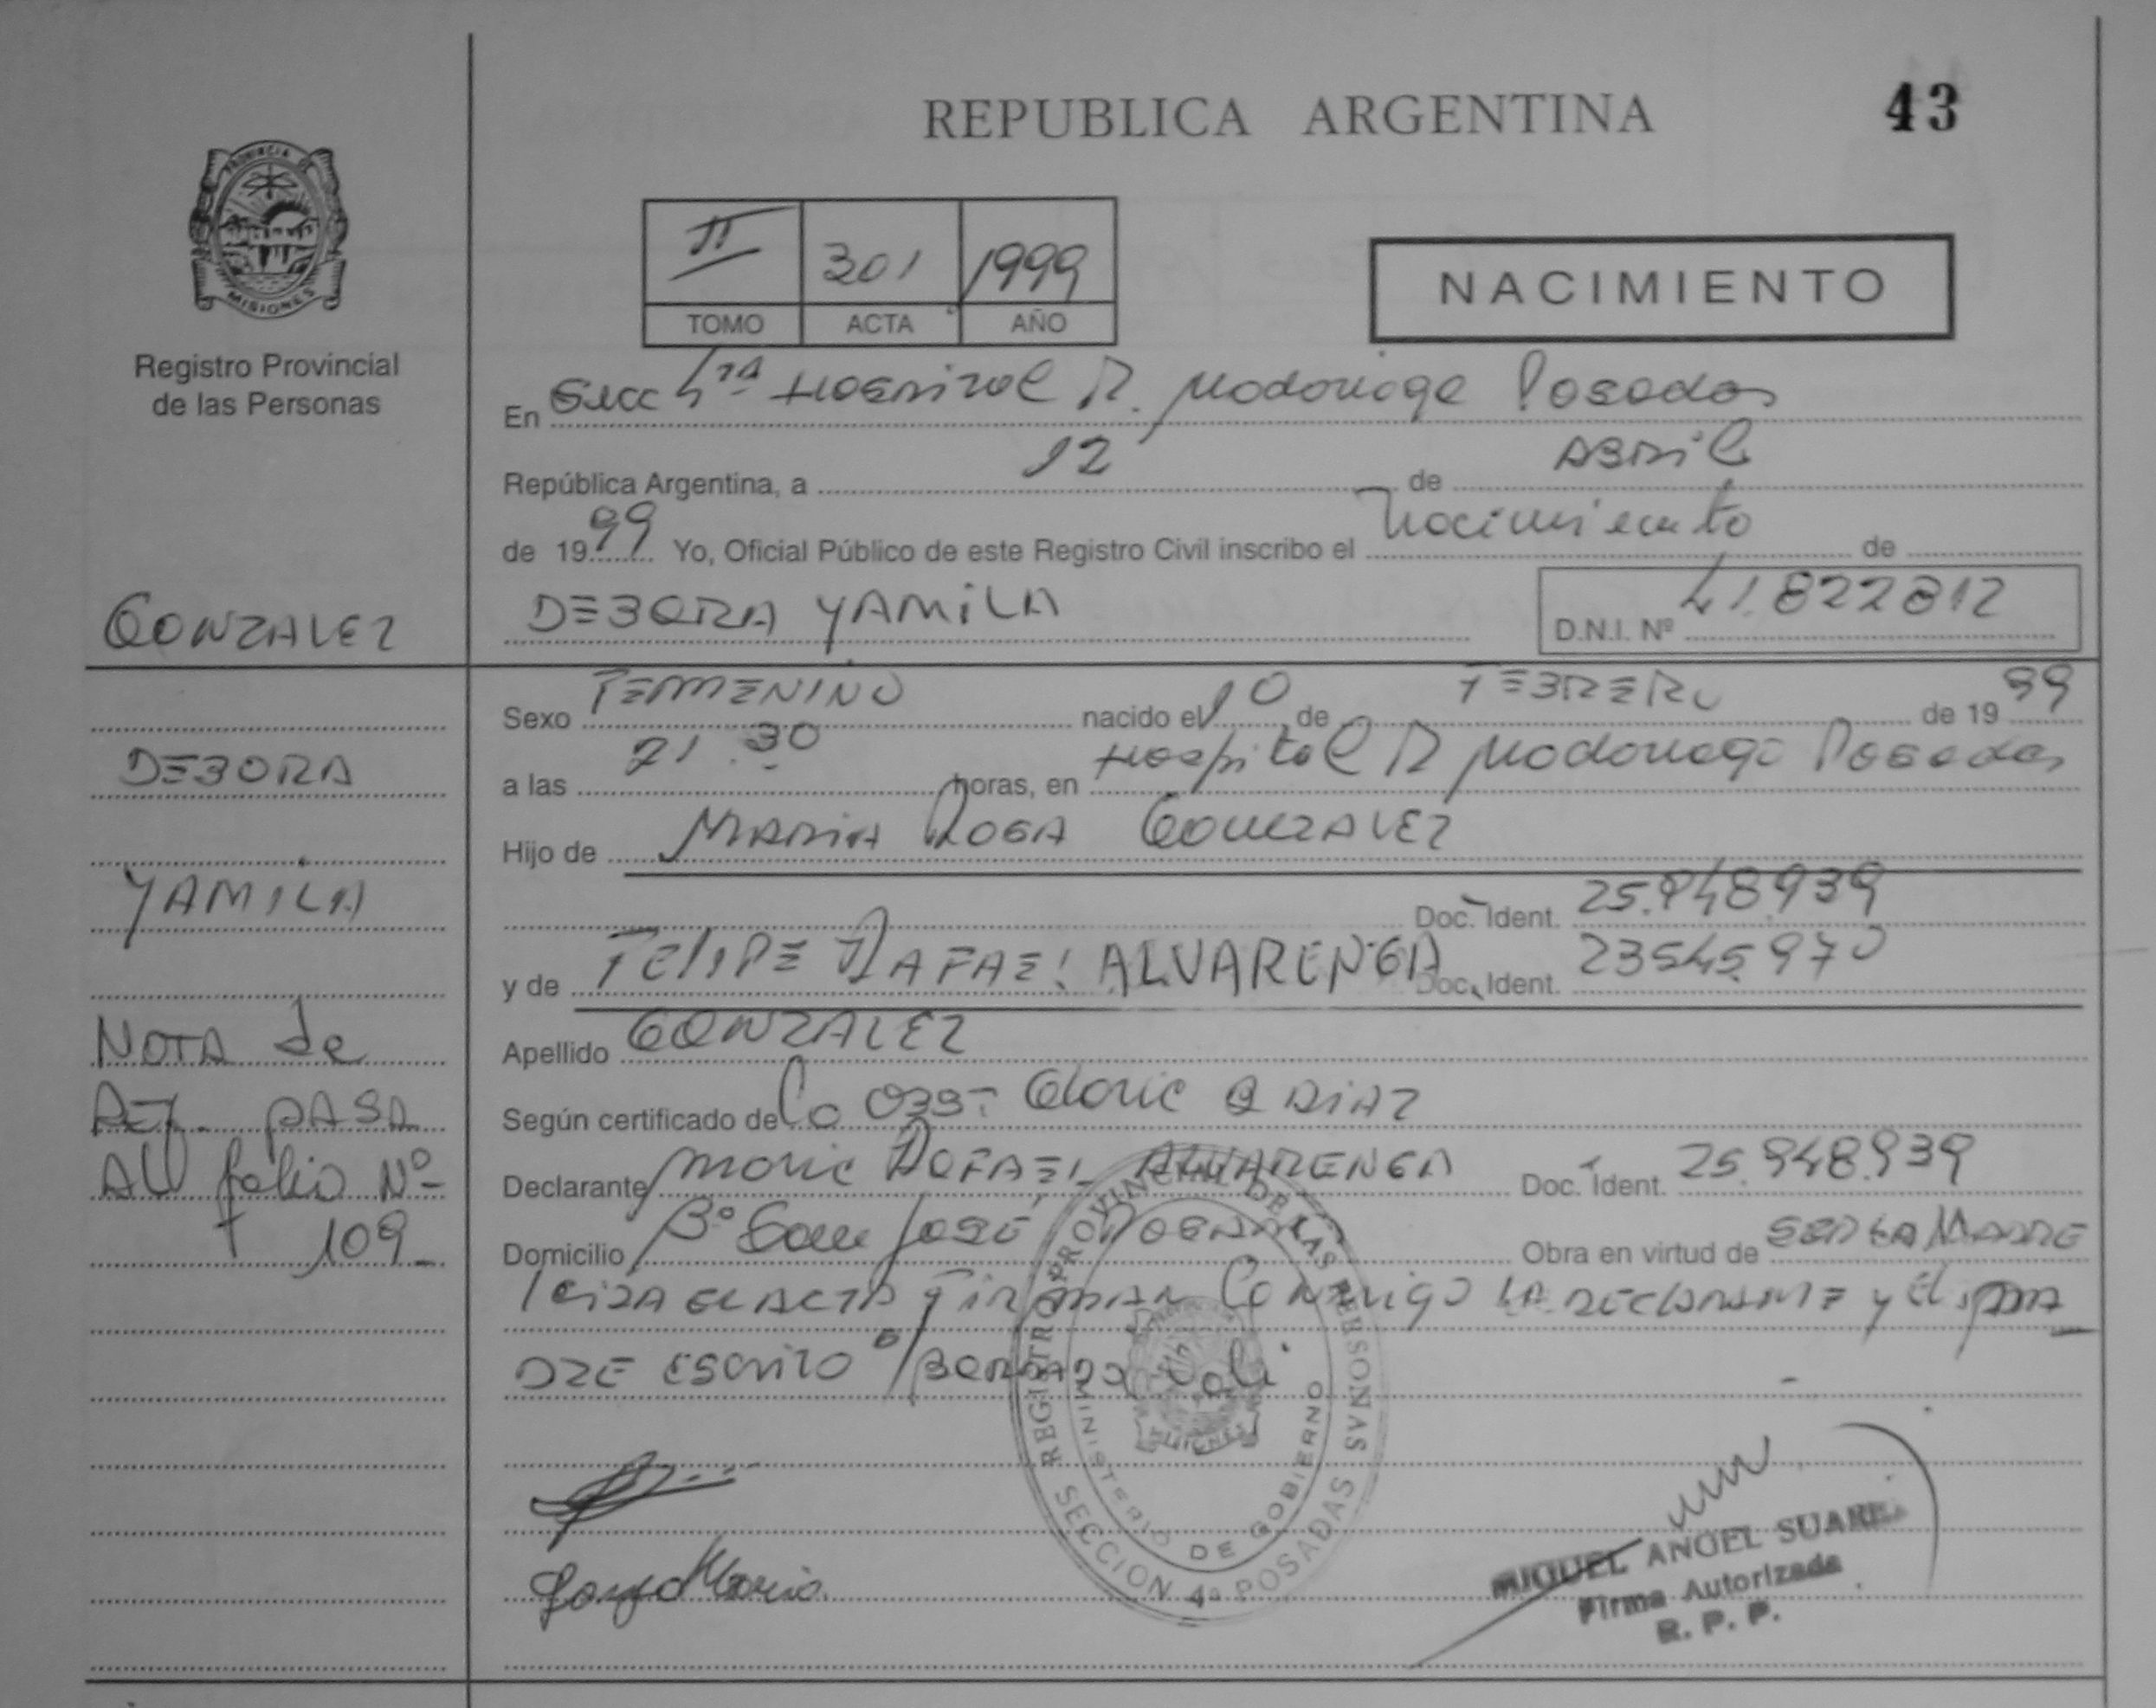 REPUBLICA ARGENTINA
43
PROVINCIA DE
MISIONES
Registro Provincial
de las Personas
II 301 1999
TOMO ACTA AÑO
NACIMIENTO
En Secc 4ta Hospital R. Madariaga Posadas
República Argentina, a 12 de ABRIL
de 1999 Yo, Oficial Público de este Registro Civil inscribo el Nacimiento de
GONZALEZ
DEBORA YAMILA
D.N.I. Nº 41.822812
Sexo FEMENINO nacido el 10 de FEBRERO de 1999
a las 21.30 horas, en Hospital R Madariaga Posadas
Hijo de MARIA ROSA GONZALEZ
Doc. Ident. 25.948.939
y de FELIPE RAFAEL ALVARENGA Doc. Ident. 23545.970
Apellido GONZALEZ
Según certificado de la Obst. Gloria DIAZ
Declarante Maria RAFAEL ALVARENGA Doc. Ident. 25.948.939
Domicilio Bº San José POSADAS Obra en virtud de SER LA MADRE
leida el ACTA FIRMAN Conmigo LA DECLARANTE y El PA
DRE ESCRITO S/ BORRADO Vale
DEBORA
YAMILA
NOTA de
REF. PASA
AL folio Nº
109
REGISTRO PROVINCIAL DE LAS PERSONAS
MINISTERIO DE GOBIERNO
SECCION 4a POSADAS
MISIONES
MIGUEL ANGEL SUAREZ
Firma Autorizada
R. P. P.